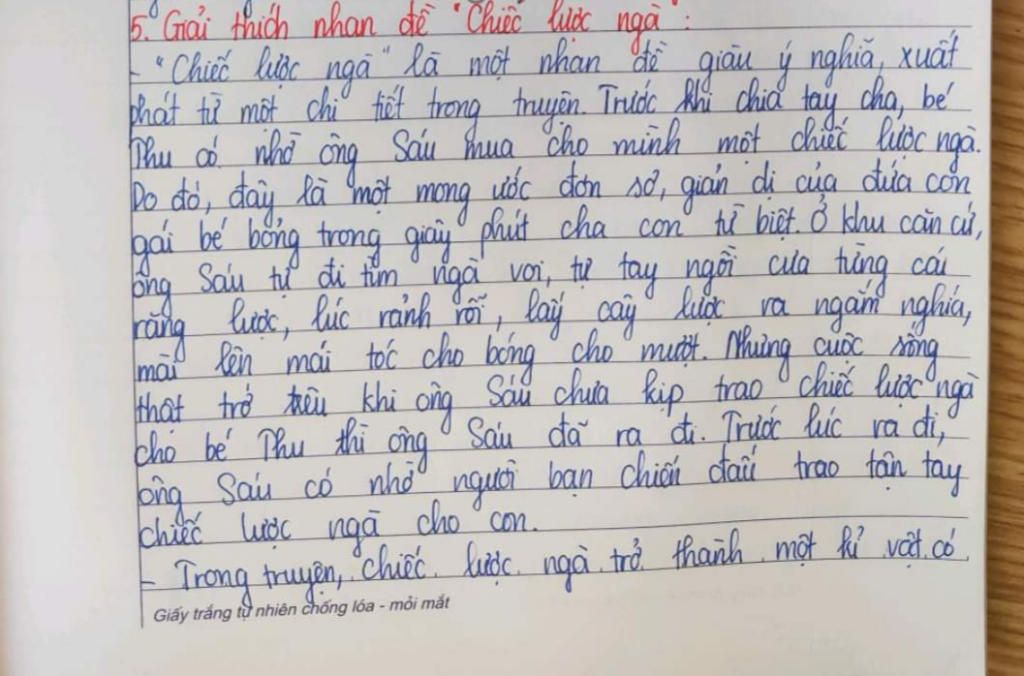 5. Giải thích nhan đề "Chiếc lược ngà":
- "Chiếc lược ngà" là một nhan đề giàu ý nghĩa, xuất
phát từ một chi tiết trong truyện. Trước khi chia tay cha, bé
Thu có nhờ ông Sáu mua cho mình một chiếc lược ngà.
Do đó, đây là một mong ước đơn sơ, giản dị của đứa con
gái bé bỏng trong giây phút cha con từ biệt. Ở khu căn cứ,
ông Sáu tự đi tìm ngà voi, tự tay ngồi cưa từng cái
răng lược, lúc rảnh rỗi, lấy cây lược ra ngắm nghía,
mài lên mái tóc cho bóng cho mượt. Nhưng cuộc sống
thật trớ trêu khi ông Sáu chưa kịp trao chiếc lược ngà
cho bé Thu thì ông Sáu đã ra đi. Trước lúc ra đi,
ông Sáu có nhờ người bạn chiến đấu trao tận tay
chiếc lược ngà cho con.
- Trong truyện, chiếc lược ngà trở thành một kỉ vật có
Giấy trắng tự nhiên chống lóa - mỏi mắt